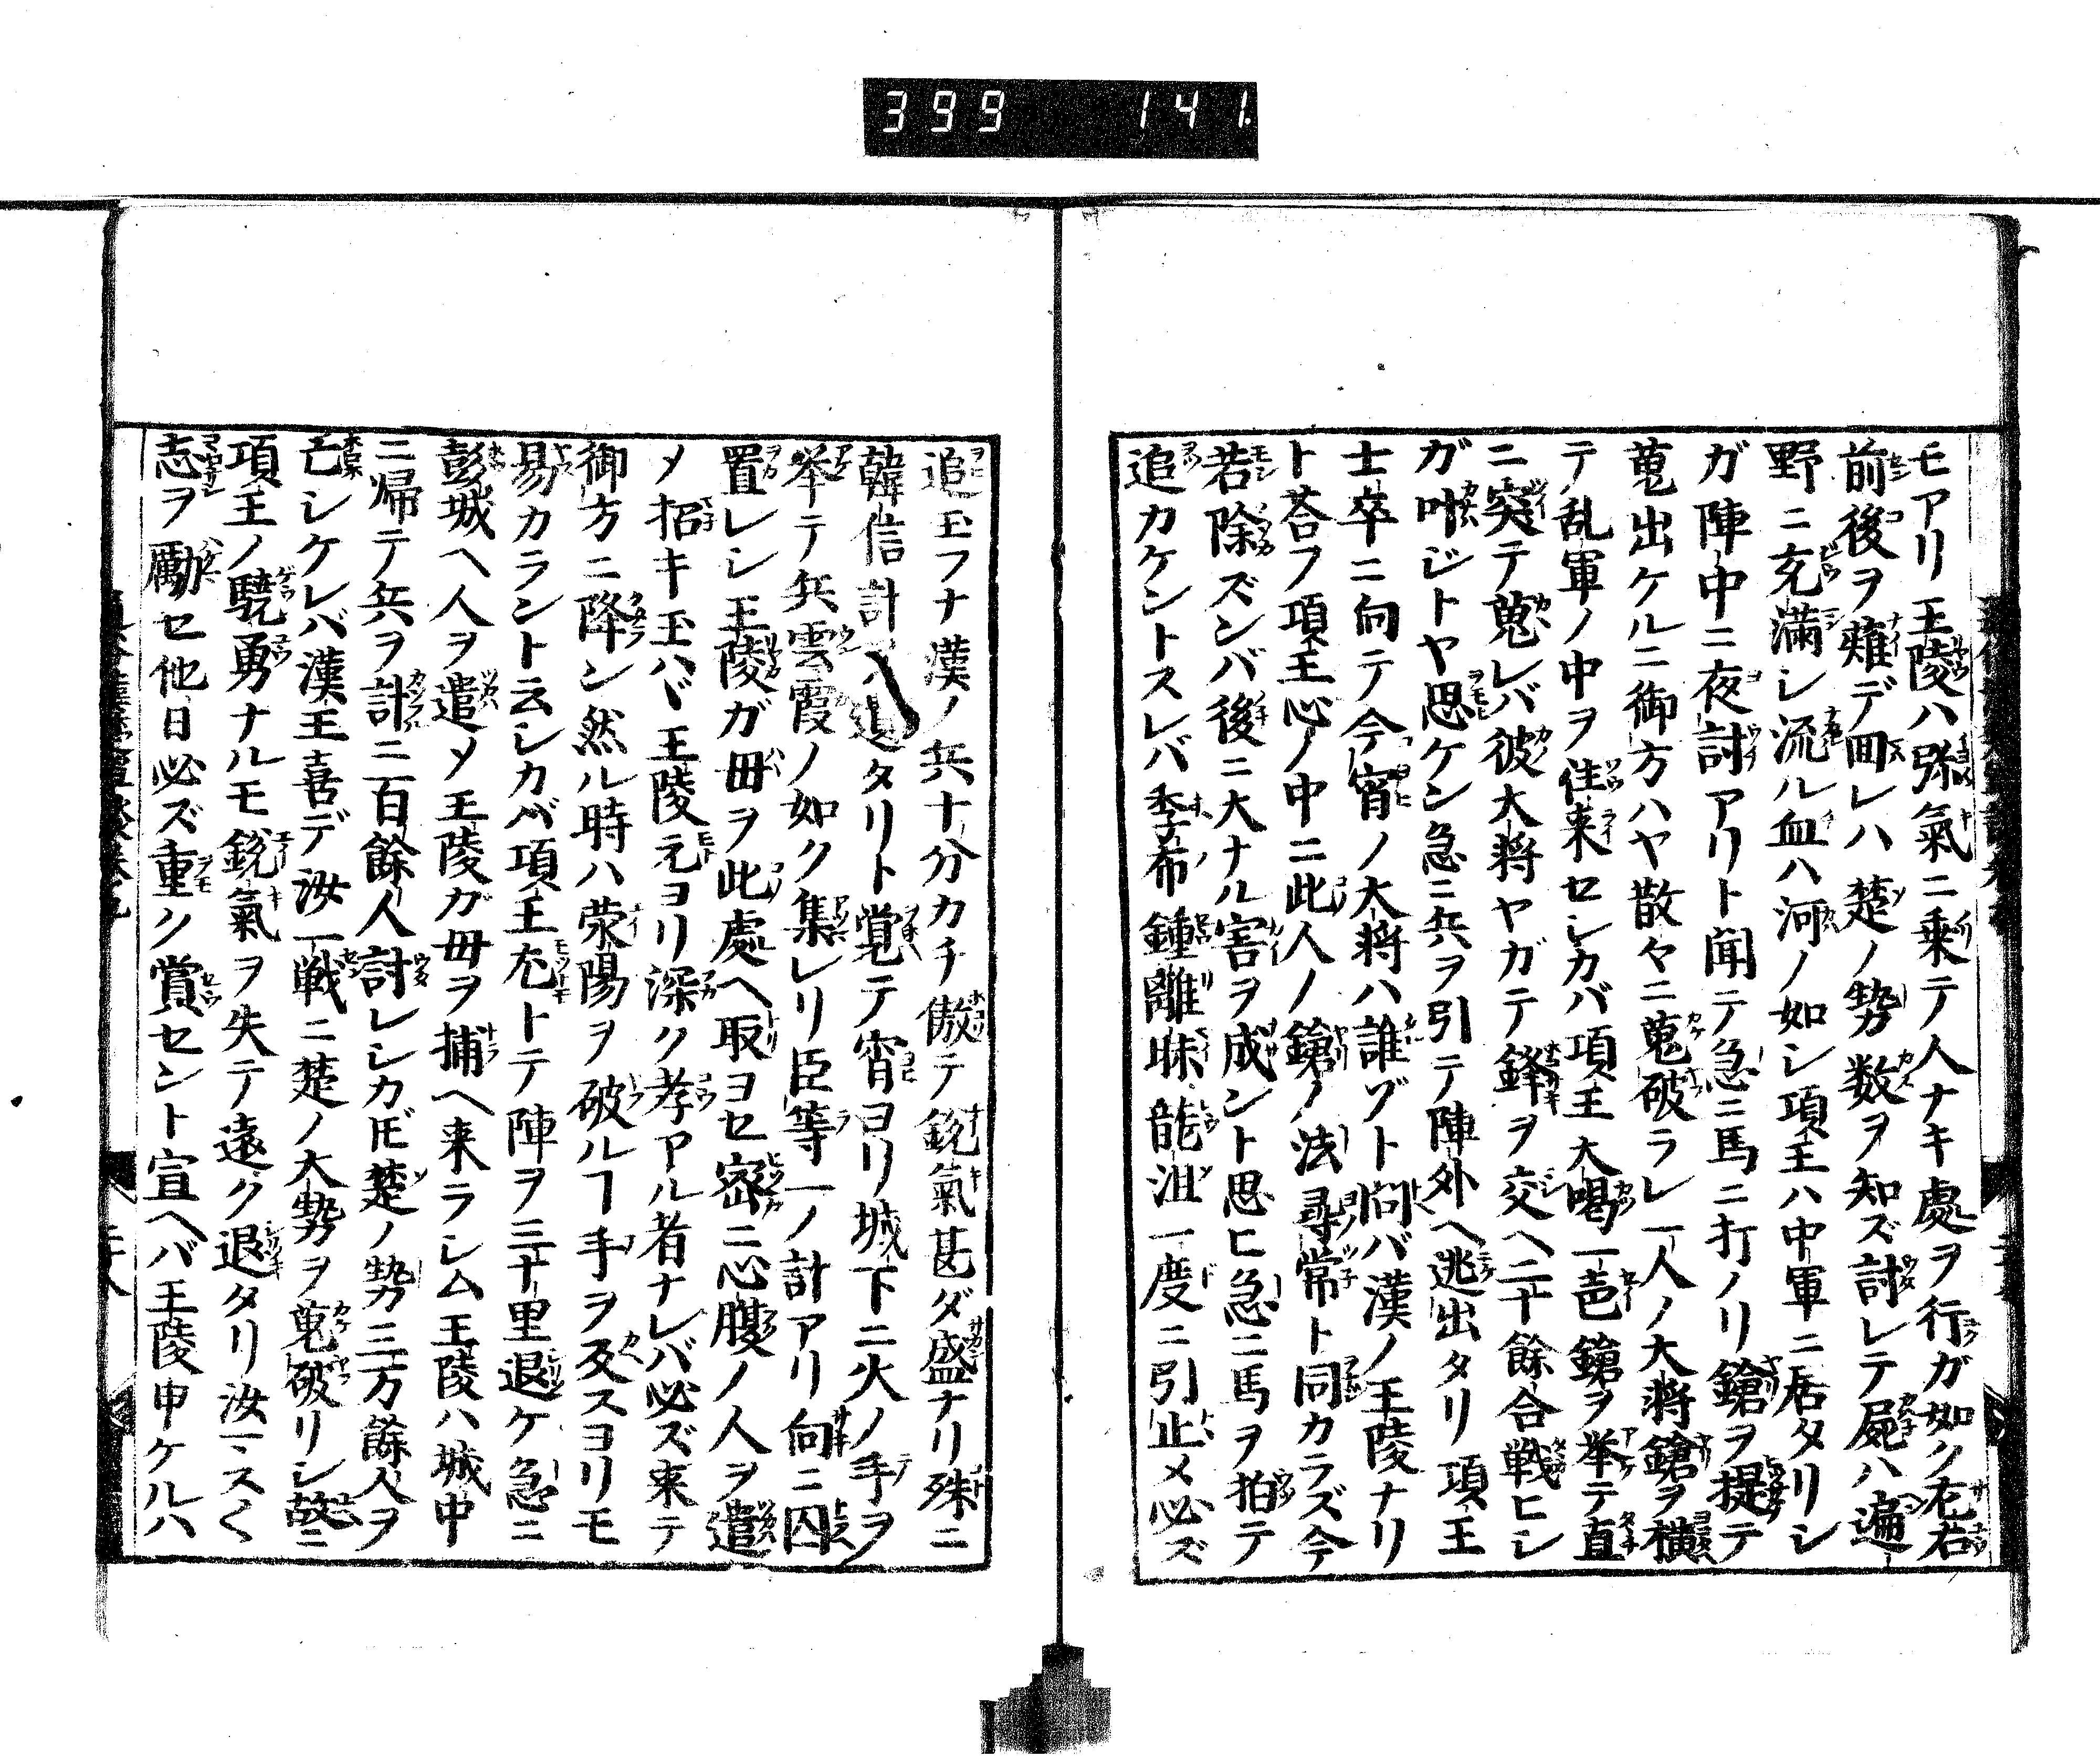 399 141.
モアリ王陵ハ弥氣ニ乗テ人ナキ處ヲ行ガ如ク左右
前後ヲ薙デ囬レハ楚ノ勢数ヲ知ズ討レテ屍ハ遍
野ニ充滿シ流ル血ハ河ノ如シ項王ハ中軍ニ居タリシ
ガ陣中ニ夜討アリト聞テ急ニ馬ニ打ノリ鎗ヲ提テ
蒐出ケルニ御方ハヤ散々ニ蒐破ラレ一人ノ大將鎗ヲ橫
テ乱軍ノ中ヲ往来セシカバ項王大喝一声鎗ヲ挙テ直
ニ突テ蒐レバ彼大將ヤガテ鋒ヲ交ヘ二十餘合戦ヒシ
ガ叶ジトヤ思ケン急ニ兵ヲ引テ陣外ヘ逃出タリ項王
士卒ニ向テ今宵ノ大將ハ誰ゾト問バ漢ノ王陵ナリ
ト荅フ項王心ノ中ニ此人ノ鎗ノ法尋常ト同カラズ今
若除ズンバ後ニ大ナル害ヲ成ント思ヒ急ニ馬ヲ拍テ
追カケントスレバ季布鍾離昧龍沮一度ニ引止メ必ズ
追玉フナ漢ノ兵十分カチ傲テ鋭氣甚ダ盛ナリ殊ニ
韓信計ヲ遺タリト覚テ宵ヨリ城下ニ火ノ手ヲ
挙テ兵雲霞ノ如ク集レリ臣等一ノ計アリ向ニ囚
置レシ王陵ガ毌ヲ此處ヘ取ヨセ密ニ心腹ノ人ヲ遣
メ招キ玉ハヾ王陵元ヨリ深ク孝アル者ナレバ必ズ来テ
御方ニ降ン然ル時ハ荥陽ヲ破ルヿ手ヲ反スヨリモ
易カラント云シカバ項王尤トテ陣ヲ三十里退ケ急ニ
彭城ヘ人ヲ遣メ王陵ガ毌ヲ捕ヘ来ラシム王陵ハ城中
ニ帰テ兵ヲ計ニ二百餘人討レシカドモ楚ノ勢三万餘人ヲ
亡シケレバ漢王喜デ汝一戦ニ楚ノ大勢ヲ蒐破リシ故ニ
項王ノ驍勇ナルモ鋭氣ヲ失テ遠ク退タリ汝一マスく
志ヲ勵セ他日必ズ重ク賞セント宣ヘバ王陵申ケルハ